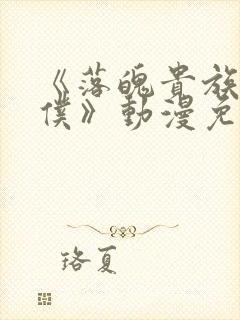 《落魄貴族
僕》動漫免
珞夏